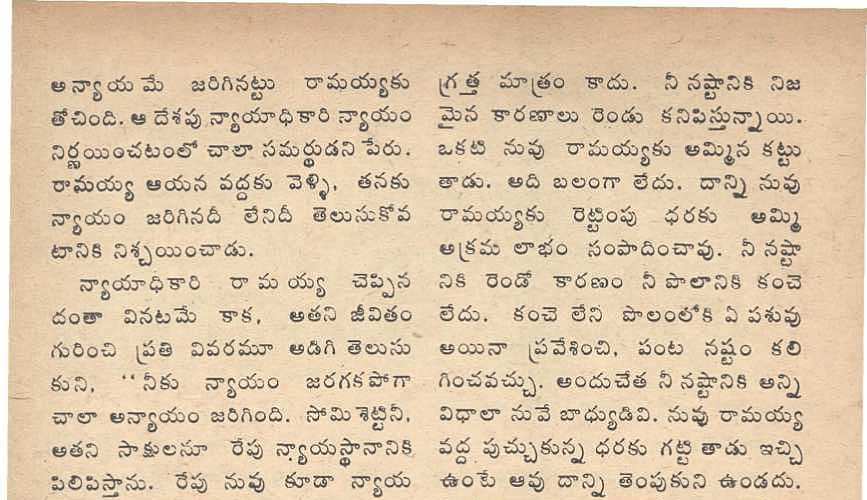 అన్యాయమే జరిగినట్టు రామయ్యకు
తోచింది. ఆ దేశపు న్యాయాధికారి న్యాయం
నిర్ణయించటంలో చాలా సమర్థుడని పేరు.
రామయ్య ఆయన వద్దకు వెళ్ళి, తనకు
న్యాయం జరిగినదీ లేనిదీ తెలుసుకోవ
టానికి నిశ్చయించాడు.
న్యాయాధికారి రామయ్య చెప్పిన
దంతా వినటమే కాక, అతని జీవితం
గురించి ప్రతి వివరమూ అడిగి తెలుసు
కుని, ‘‘నీకు న్యాయం జరగకపోగా
చాలా అన్యాయం జరిగింది. సోమిశెట్టినీ,
అతని సాక్షులనూ రేపు న్యాయస్థానానికి
పిలిపిస్తాను. రేపు నువు కూడా న్యాయ
గ్రత్త మాత్రం కాదు. నీ నష్టానికి నిజ
మైన కారణాలు రెండు కనిపిస్తున్నాయి.
ఒకటి నువు రామయ్యకు అమ్మిన కట్టు
తాడు. అది బలంగా లేదు. దాన్ని నువు
రామయ్యకు రెట్టింపు ధరకు అమ్మి
అక్రమ లాభం సంపాదించావు. నీ నష్టా
నికి రెండో కారణం నీ పొలానికి కంచె
లేదు. కంచె లేని పొలంలోకి ఏ పశువు
అయినా ప్రవేశించి, పంట నష్టం కలి
గించవచ్చు. అందుచేత నీ నష్టానికి అన్ని
విధాలా నువే బాధ్యుడివి. నువు రామయ్య
వద్ద పుచ్చుకున్న ధరకు గట్టి తాడు ఇచ్చి
ఉంటే ఆవు దాన్ని తెంపుకుని ఉండదు.